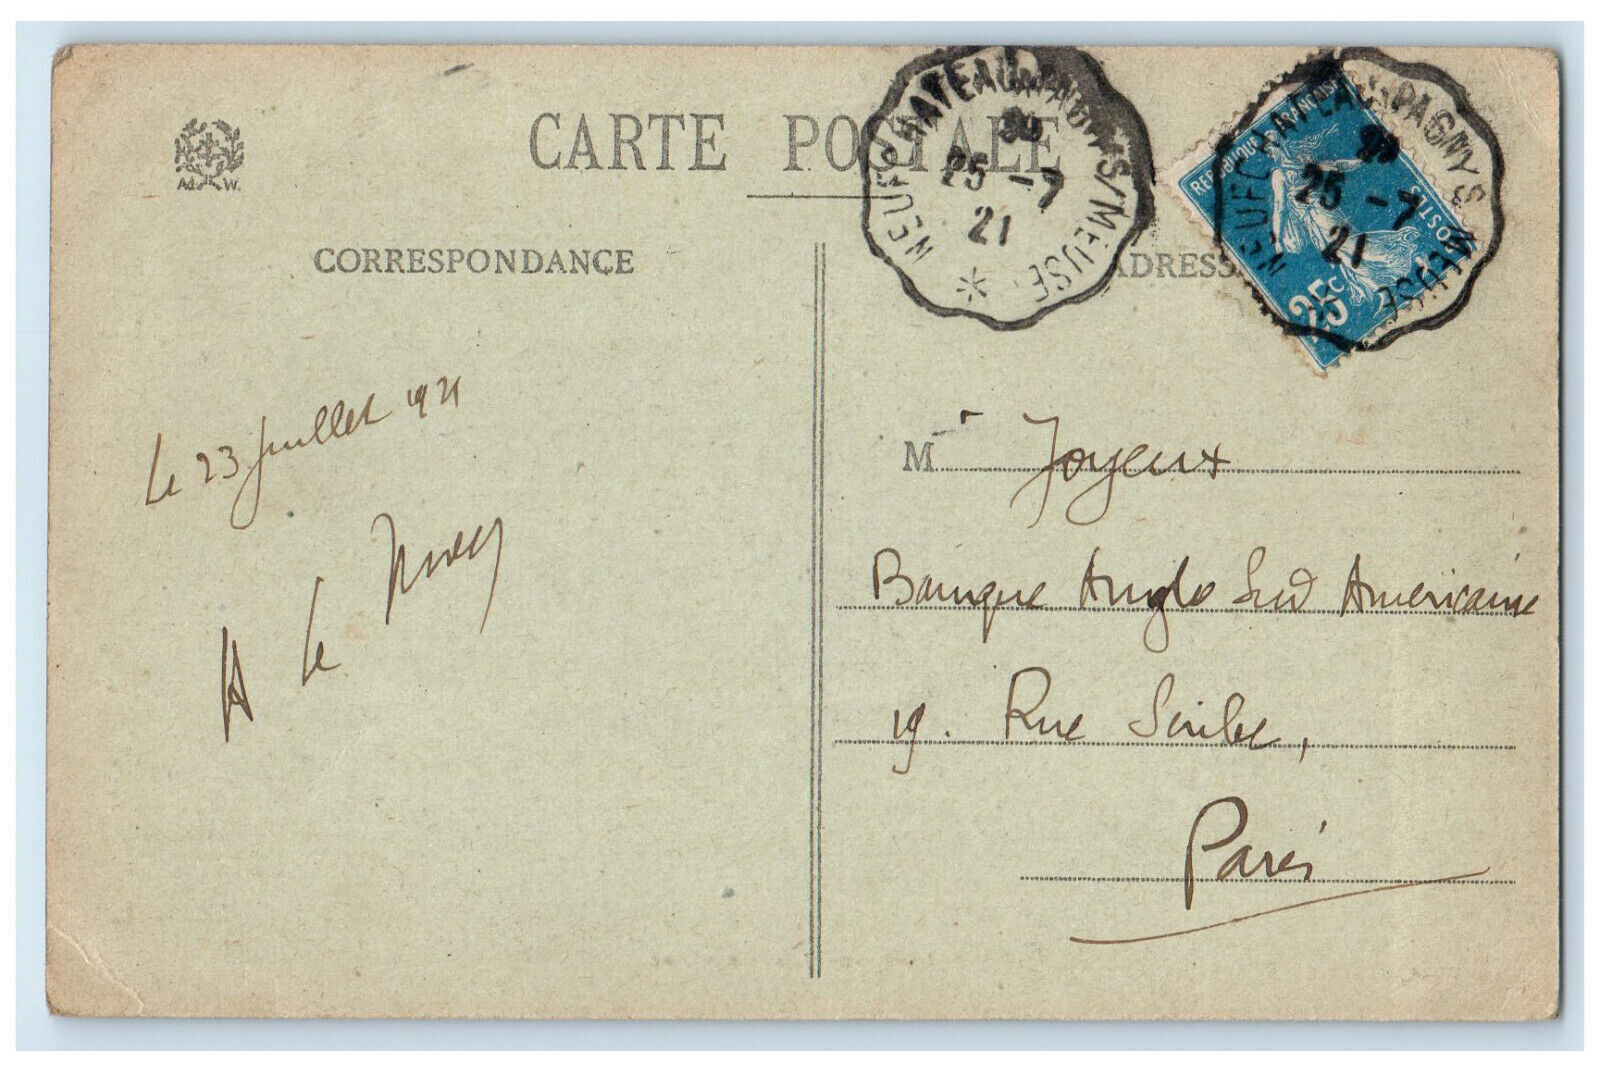 CARTE POSTALE
Ad. W.
CORRESPONDANCE
ADRESSE
NEUFCHATEAU A PAGNY S/MEUSE
25 -7
21
NEUFCHATEAU A PAGNY S/MEUSE
25 -7
21
REPUBLIQUE FRANÇAISE
POSTES
25c
le 23 juillet 1921
A le
M r Joyeux
Banque Anglo Sud Américaine
19. Rue Scribe,
Paris